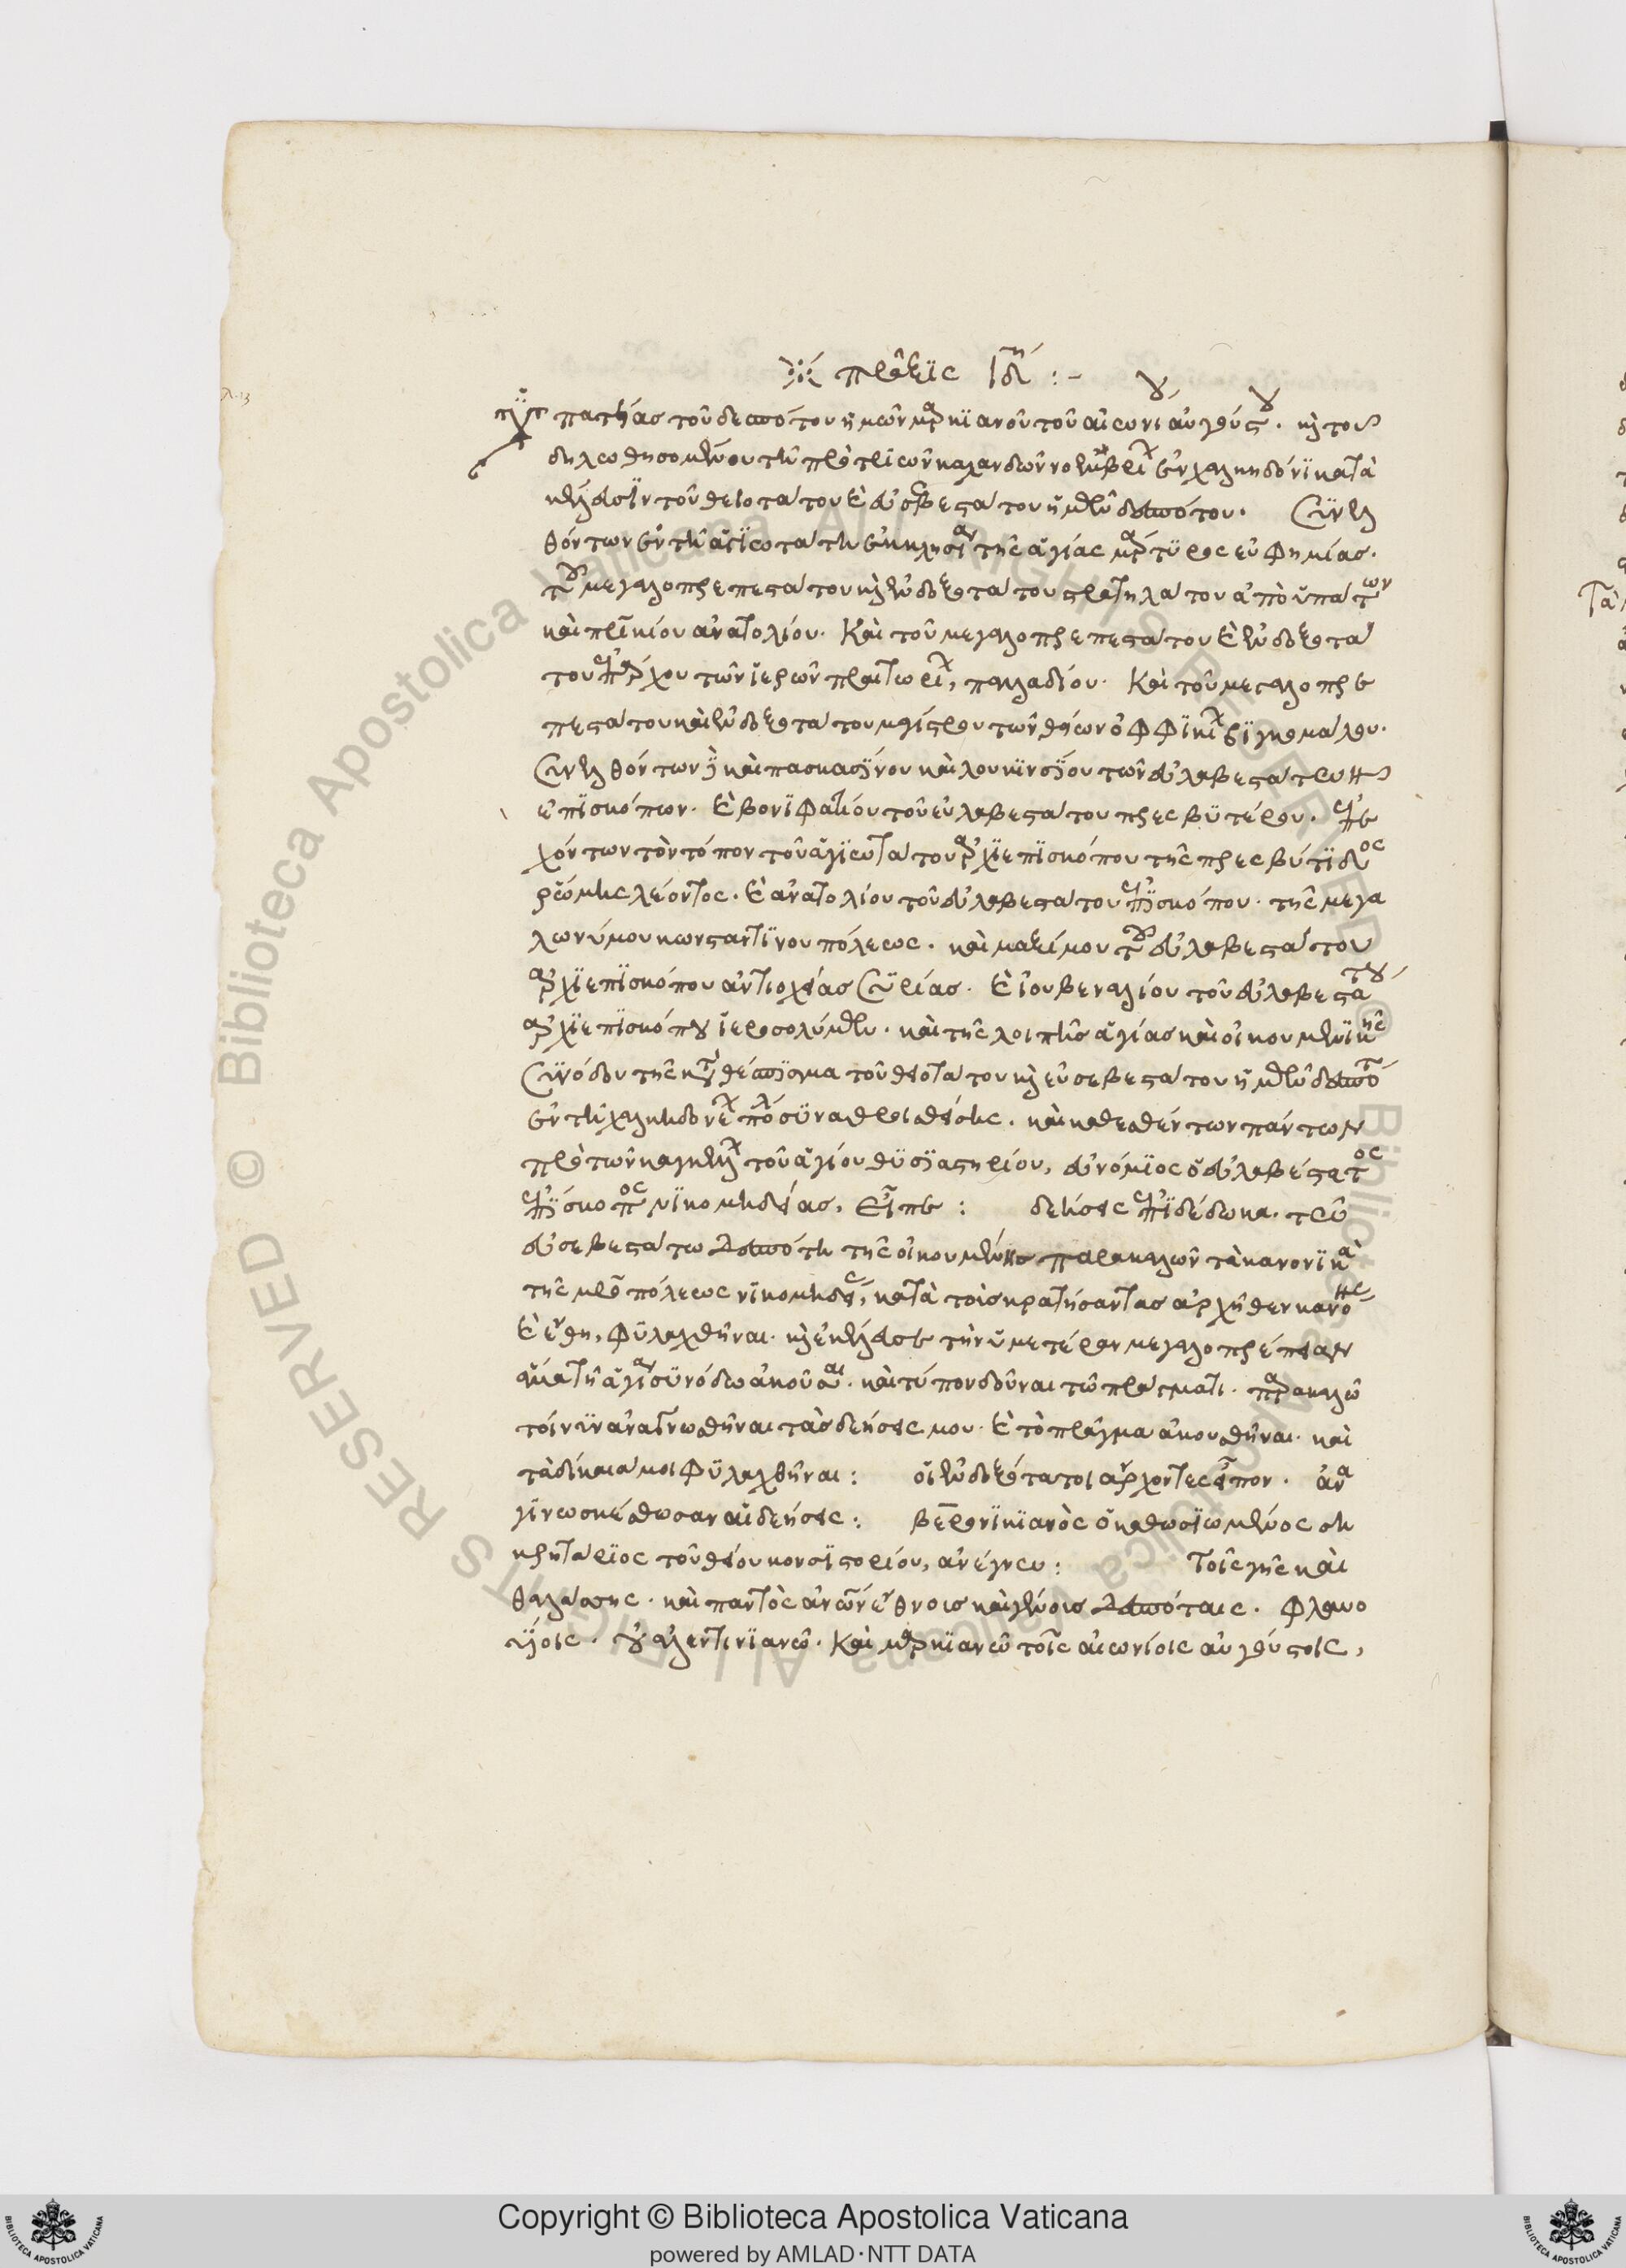 πρᾶξις ιδ´ :-
ὑπατείας τοῦ δεσπότου ἡμῶν μαρκιανοῦ τοῦ αἰωνίου αὐγούστου. καὶ τοῦ
δηλωθησομένου τῆ πρὸ τριῶν καλανδῶν νοεμβρίων ἐν χαλκηδόνι κατὰ
κέλευσιν τοῦ θειοτάτου καὶ εὐσεβεστάτου ἡμῶν δεσπότου. Συνελ
θόντων ἐν τῆ ἁγιωτάτη ἐκκλησία τῆς ἁγίας μάρτυρος εὐφημίας.
τοῦ μεγαλοπρεπεστάτου καὶ ἐνδοξοτάτου στρατηλάτου ἀπὸ ὑπάτων
καὶ πατρικίου ἀνατολίου. Καὶ τοῦ μεγαλοπρεπεστάτου καὶ ἐνδοξοτά
του ἐπάρχου τῶν ἱερῶν πραιτωρίων, παλλαδίου. Καὶ τοῦ μεγαλοπρε
πεστάτου καὶ ἐνδοξοτάτου μαγίστρου τῶν θείων ὀφφικίων βιγκομάλου.
Συνελθόντων δὲ καὶ πασκασίνου καὶ λουκινσίου τῶν εὐλαβεστάτων
ἐπισκόπων. καὶ βονιφατίου τοῦ εὐλαβεστάτου πρεσβυτέρου. ἐπε
χόντων τὸν τόπον τοῦ ἁγιωτάτου ἀρχιεπισκόπου τῆς πρεσβύτιδος
ῥώμης λέοντος. καὶ ἀνατολίου τοῦ εὐλαβεστάτου ἐπισκόπου τῆς μεγα
λωνύμου κωνσταντίνου πόλεως. καὶ μαξίμου τοῦ εὐλαβεστάτου
ἀρχιεπισκόπου ἀντιοχείας Συρίας. καὶ ἰουβεναλίου τοῦ εὐλαβεστάτου
ἀρχιεπισκόπου ἱεροσολύμων. καὶ τῆς λοιπῆς ἁγίας καὶ οἰκουμενικῆς
Συνόδου τῆς κατὰ θέσπισμα τοῦ θειοτάτου καὶ εὐσεβεστάτου ἡμῶν δεσπότου
ἐν τῆ χαλκηδονέων πόλει συναθροισθείσης. καὶ καθεσθέντων πάντων
πρὸ τῶν καγκέλλων τοῦ ἁγίου θυσιαστηρίου, εὐνόμιος ὁ εὐλαβέστατος
ἐπίσκοπος νικομηδείας, εἶπε : δεήσεις ἐπιδέδωκα τῶ
εὐσεβεστάτω δεσπότη τῆς οἰκουμένης παρακαλῶν τὰ κανονικὰ
τῆς μητροπόλεως νικομηδείας, κατὰ τοὺς κρατήσαντας ἀρχῆθεν κανόνας
καὶ ἔθη, φυλαχθῆναι. καὶ ἐκέλευσε τὴν ὑμετέραν μεγαλοπρέπειαν
ἅμα τῆ ἁγία συνόδω ἀκοῦσαι. καὶ τύπον δοῦναι τῶ πράγματι. παρακαλῶ
τοίνυν ἀναγνωσθῆναι τὰς δεήσεις μου. καὶ τὸ πρᾶγμα ἀκουσθῆναι. καὶ
τὰ δίκαιά μοι φυλαχθῆναι : οἱ ἐνδοξότατοι ἄρχοντες εἶπον. ἀνα
γινωσκέσθωσαν αἱ δεήσεις : βερονικιανὸς ὁ καθωσιωμένος ση
κρητάριος τοῦ θείου κονσιστορίου, ἀνέγνω : Τοῖς γῆς καὶ
θαλάσσης. καὶ παντὸς ἀνθρώπων ἔθνους καὶ γένους δεσπόταις. φλαυο
υίοις. οὐαλεντινιανῶ. Καὶ μαρκιανῶ τοῖς αἰωνίοις αὐγούστοις,